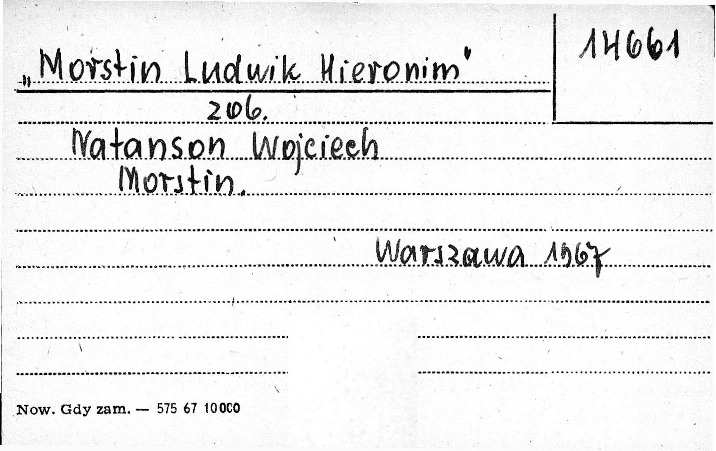 14661
„Morstin Ludwik Hieronim"
zob.
Natanson Wojciech
Morstin.
Warszawa 1967
Now. Gdy zam. — 575 67 10000